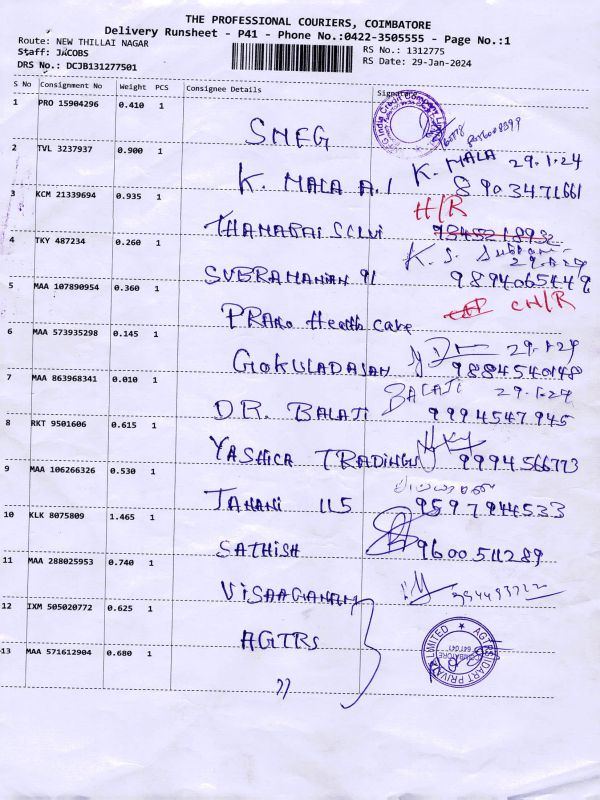 THE PROFESSIONAL COURIERS, COIMBATORE
Delivery Runsheet - P41 - Phone No.:0422-3505555 - Page No.:1
Route: NEW THILLAI NAGAR
Staff: JACOBS
DRS No.: DCJB131277501
RS No.: 1312775
RS Date: 29-Jan-2024
S No Consignment No Weight PCS Consignee Details Signature
1 PRO 15904296 0.410 1 SMFG
2 TVL 3237937 0.900 1 K. MALA A.1 K. MALA 29.1.24 8903471661
3 KCM 21339694 0.935 1 THANAPAI SELVI H/R
4 TKY 487234 0.260 1 SUBRAMANIAN 91 K. S. 29.1.24 9894065449
5 MAA 107890954 0.360 1 PRAKO Health care CH/R
6 MAA 573935298 0.145 1 GOKULADASAN 29.1.24 9884540148
7 MAA 863968341 0.010 1 DR. BALAJI BALAJI 29.1.24 9994547945
8 RKT 9501606 0.615 1 YASHICA TRADINGS 9994566773
9 MAA 106266326 0.530 1 JANANI 115 9597944533
10 KLK 8075809 1.465 1 SATHISH 9600511289
11 MAA 288025953 0.740 1 VISAAGANAM
12 IXM 505020772 0.625 1 AGTRS
13 MAA 571612904 0.680 1 ,,